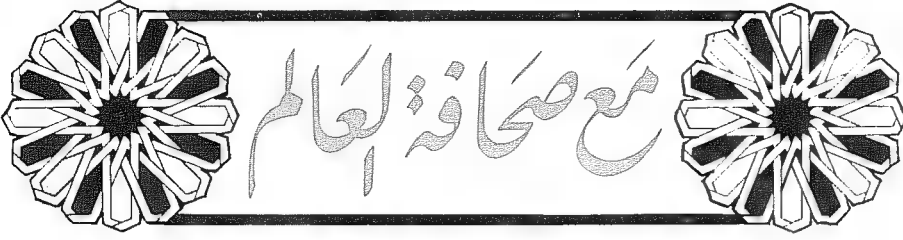 مَع صَحَافة العَالم